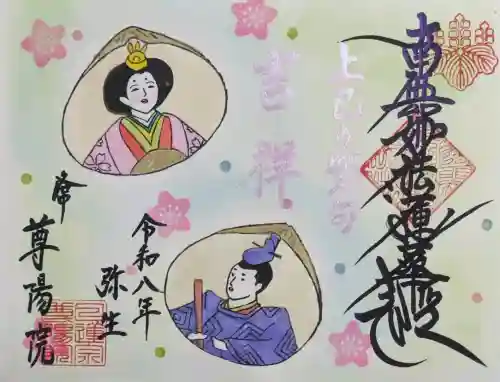 南無妙法蓮華経
上巳の節句
吉祥
令和八年
弥生
常
尊陽院